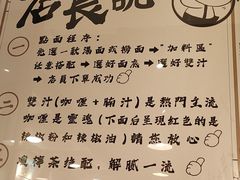 店長說
一 點面程序:
先選一款湯面或撈面→"加料區"
任意搭配→選好面底→選好雙汁
→店員下單成功
二 雙汁(咖喱+腩汁)是熱門主流
咖喱是靈魂(下面后呈現紅色的是
辣椒粉如辣椒油)請您放心
三 檸檬茶绝配,解膩一流